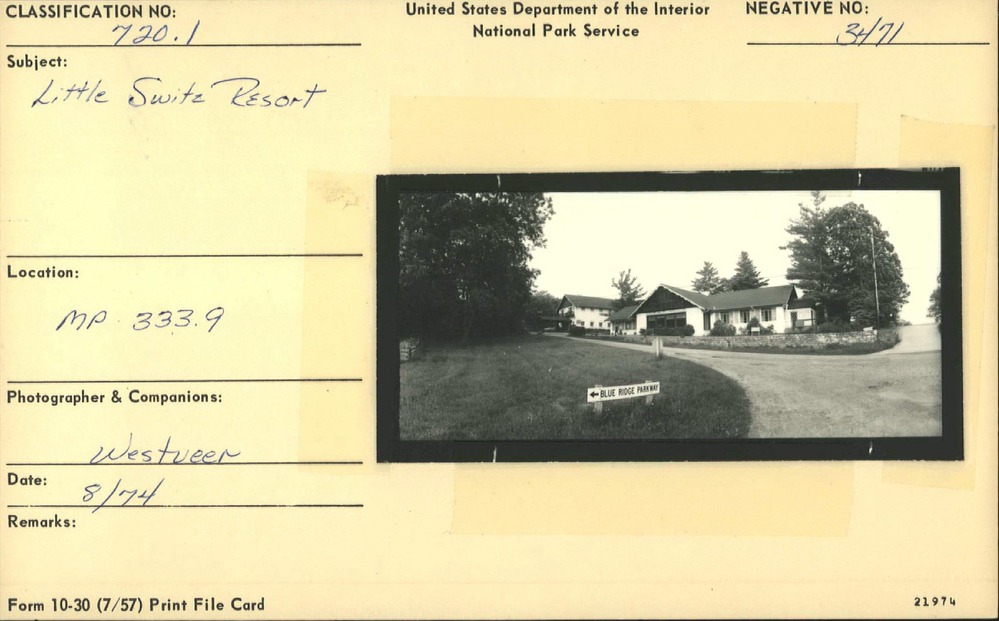 CLASSIFICATION NO:
720.1
United States Department of the Interior
National Park Service
NEGATIVE NO:
3471
Subject:
Little Switz Resort
Location:
MP 333.9
Photographer & Companions:
Westveer
Date:
8/74
Remarks:
←BLUE RIDGE PARKWAY
Form 10-30 (7/57) Print File Card
21974